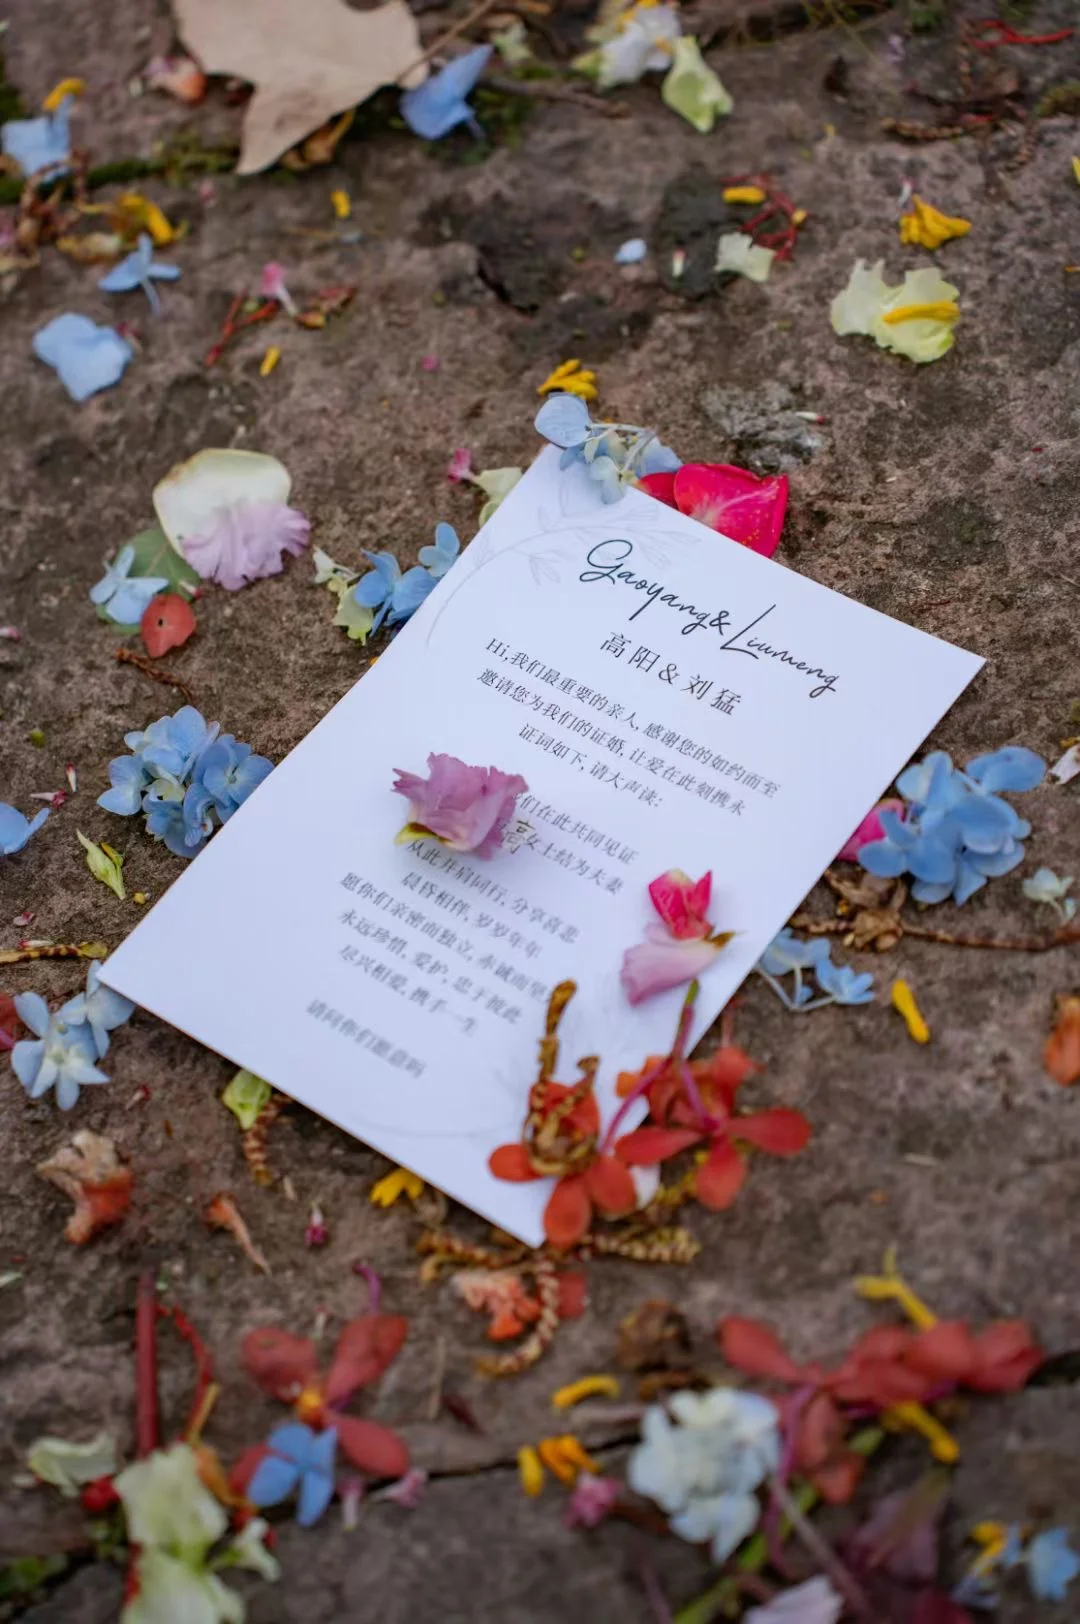 Gaoyang & Liumeng
高阳 & 刘猛
Hi,我们最重要的亲人,感谢您的如约而至
邀请您为我们的证婚,让爱在此刻携永
证词如下,请大声读:
们在此共同见证
高女士结为夫妻
从此并肩同行,分享喜悲
晨昏相伴,岁岁年年
愿你们亲密而独立,赤诚而坚
永远珍惜,爱护,忠于彼此
尽兴相爱,携手一生
请问你们愿意吗